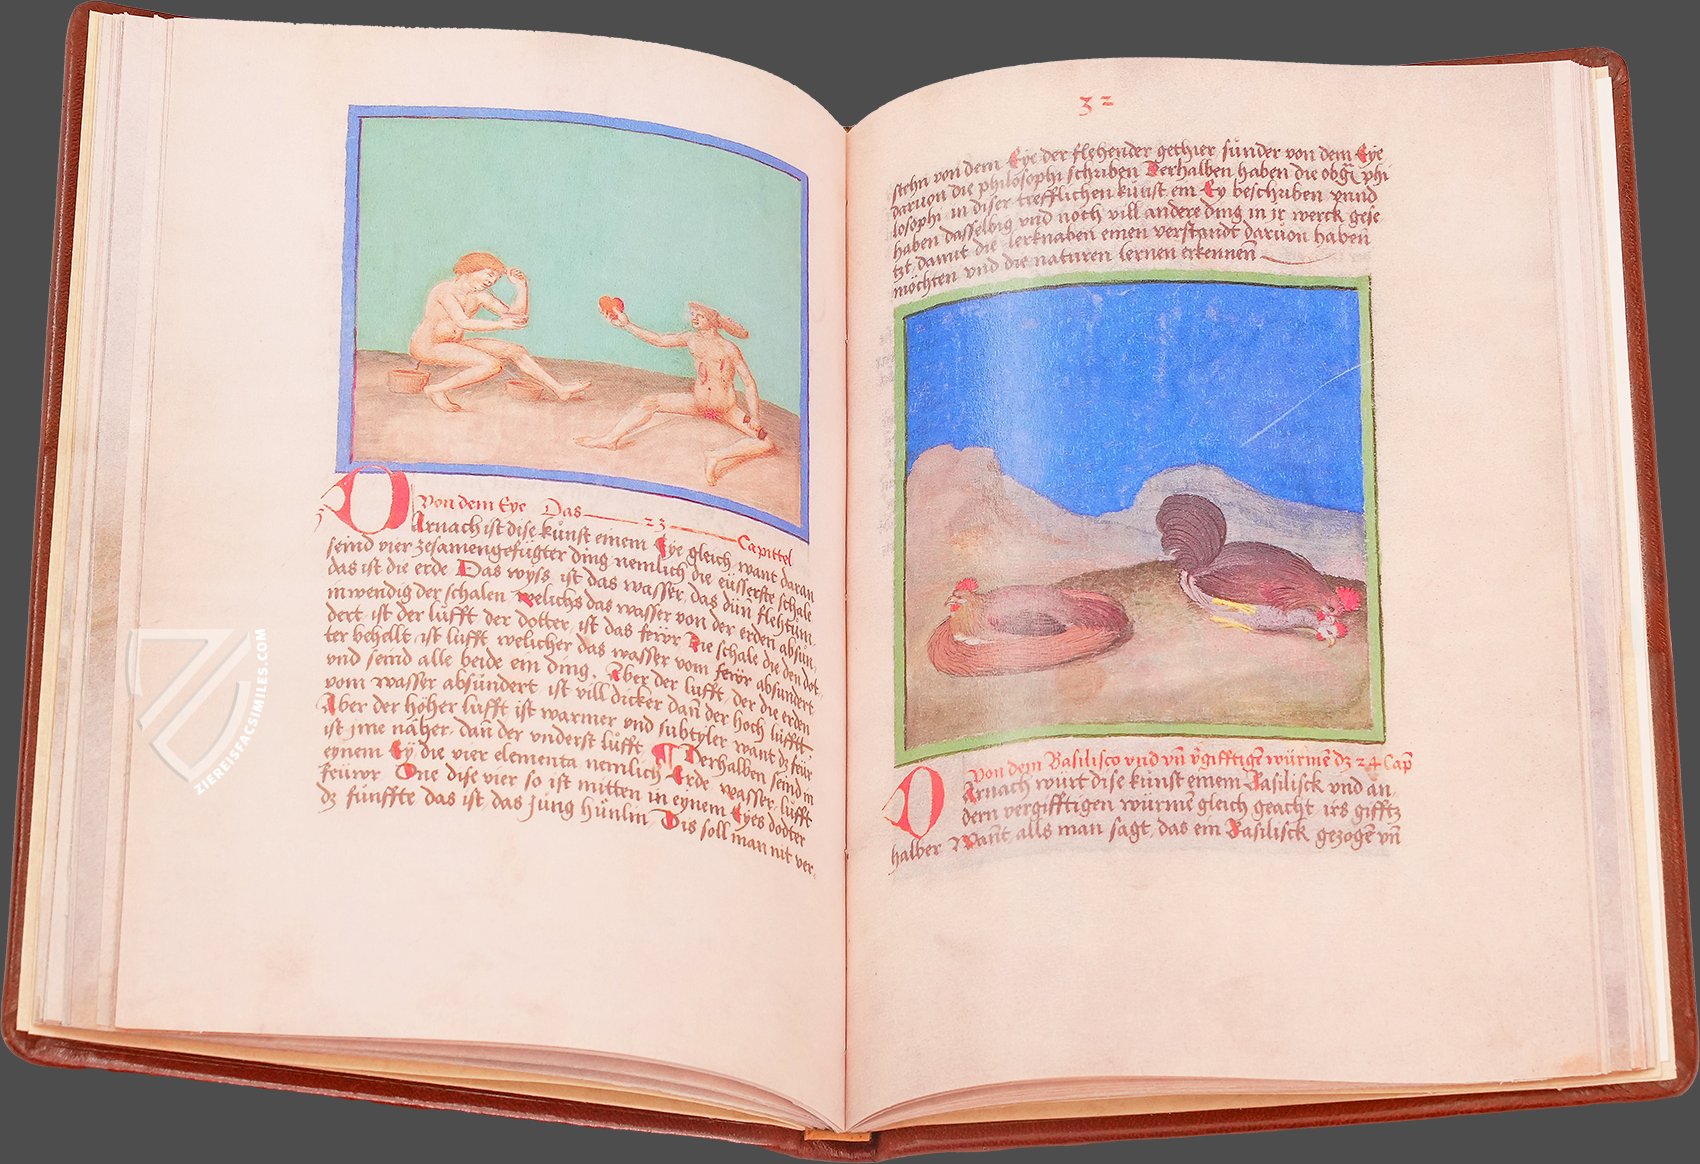 Von dem Eye Das 23 Capittel
Darnach ist dise künst einem Eye gleich want daran
seind vier zesamengefügter ding nemlich die eüsserste schale
das ist die erde Das wyss ist das wasser, das dün flehtüm
inwendig der schalen welichs das wasser von der erden absün,
dert ist der lüfft der dotter, ist das feüor Die schale die den dot
ter behelt ist lüfft welicher das wasser vom feüor absundert
vnd seind alle beide ein ding. Aber der lüfft, der die erden
vom wasser absündert ist vill dicker dañ der hoch lüfft
Aber der höher lüfft ist warmer vnd subtyler want dz feür
ist jme näher dañ der vnderst lüfft Derhalben seind in
eynem Ey die vier elementa nemlich Erde wasser lüfft
feüror One dise vier so ist mitten in eynem Eyes dodter
dz fünffte das ist das jung hünlin Dis soll man nit ver,
32
stehn von dem Eye der flehender gethier sünder von dem Eye
daruon die philosophi schriben Derhalben haben die obgn̄ phi
losophi in diser trefflichen künst ein Ey beschriben vnnd
haben dasselbig vnd noch vill andere ding in jr werck gese
tzt damit die lerknaben einen verstandt daruon haben
möchten vnd die naturen lernen erkennen
Von dem Basilisco vnd vñ v̄gifftigē würmē dz 24 Cap
Darnach würt dise künst einem Basilisck vnd an,
dern vergifftigen würmē gleich geacht irs gifftz
halber Wañt alls man sagt, das ein Basilisck gezogē vñ
ZIEREISFACSIMILES.COM